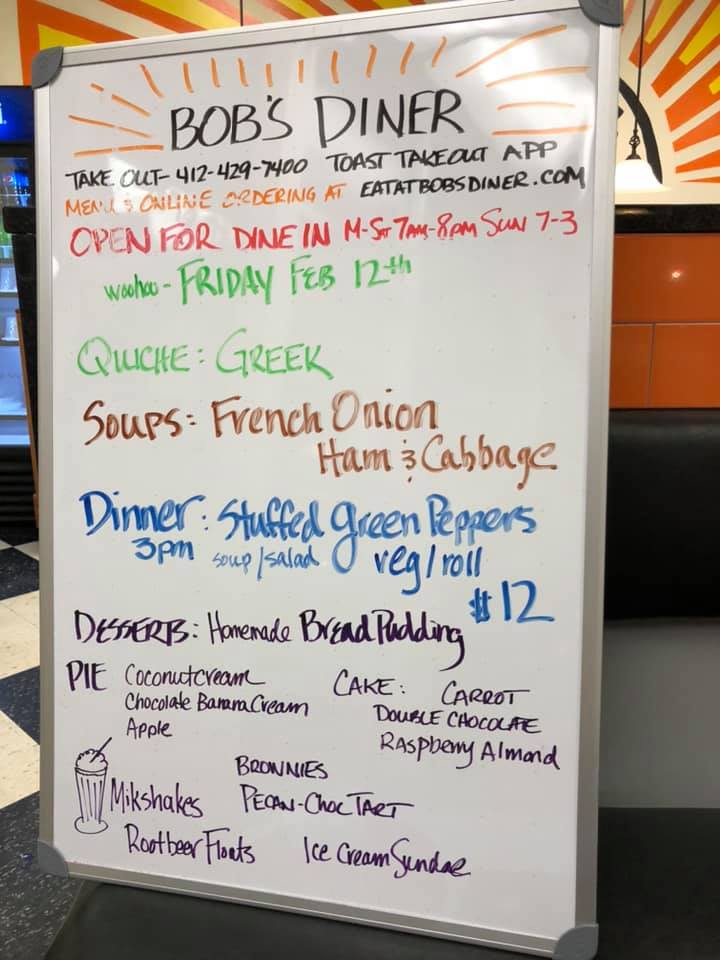 BOB'S DINER
TAKE OUT- 412-429-7400 TOAST TAKEOUT APP
MENU & ONLINE ORDERING AT EATATBOBSDINER.COM
OPEN FOR DINE IN M-SAT 7AM-8PM SUN 7-3
woohoo- FRIDAY FEB 12th
QUICHE: GREEK
Soups: French Onion
Ham & Cabbage
Dinner: Stuffed Green Peppers
3pm soup/salad veg/roll
$12
DESSERTS: Homemade Bread Pudding
PIE Coconut cream
Chocolate Banana Cream
Apple
CAKE: CARROT
DOUBLE CHOCOLATE
Raspberry Almond
BROWNIES
Milkshakes PECAN-CHOC TART
Rootbeer Floats Ice Cream Sundae